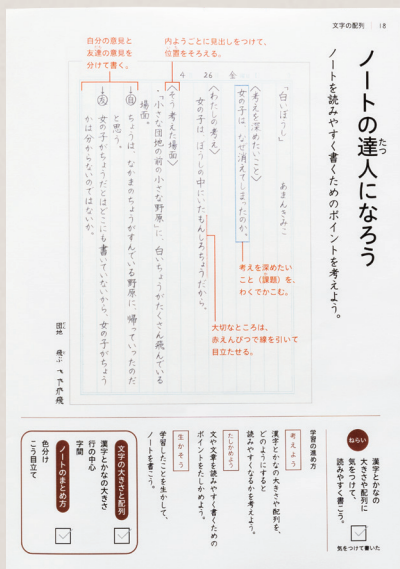 文字の配列 18
ノートの達人になろう
たつ
ノートを読みやすく書くためのポイントを考えよう。
自分の意見と
友達の意見を
分けて書く。
内ようごとに見出しをつけて、
位置をそろえる。
4 26 金
「白いぼうし」 あまんきみこ
〈考えを深めたいこと〉
女の子は、なぜ消えてしまったのか。
〈わたしの考え〉
女の子は、ぼうしの中にいたもんしろちょうだから。
〈そう考えた場面〉
・「小さな団地の前の小さな野原」に、白いちょうがたくさん飛んでいる
場面。
自 ちょうは、なかまのちょうがすんでいる野原に、帰っていったのだ
と思う。
友 女の子がちょうだとはどこにも書いていないから、女の子がちょう
かは分からないのではないか。
考えを深めたい
こと(課題)を、
わくでかこむ。
大切なところは、
赤えんぴつで線を引いて
目立たせる。
団地
飛ぶ
ねらい
漢字とかなの
大きさや配列に
気をつけて、
読みやすく書こう。
気をつけて書いた
学習の進め方
考えよう
漢字とかなの大きさや配列を、
どのようにすると
読みやすくなるかを考えよう。
たしかめよう
文や文章を読みやすく書くための
ポイントをたしかめよう。
生かそう
学習したことを生かして、
ノートを書こう。
文字の大きさと配列
漢字とかなの大きさ
行の中心
字間
ノートのまとめ方
色分け
こう目立て